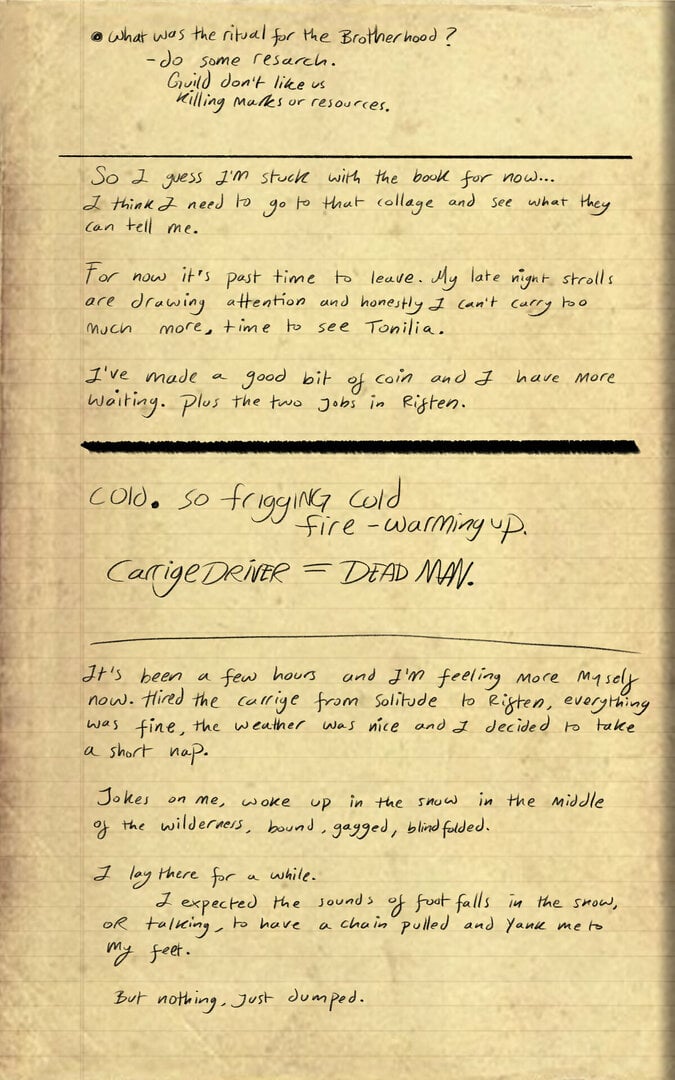 • What was the ritual for the Brotherhood?
- do some resarch.
Guild don't like us
killing marks or resources.
So I guess I'm stuck with the book for now...
I think I need to go to that collage and see what they
can tell me.
For now it's past time to leave. My late night strolls
are drawing attention and honestly I can't carry too
much more, time to see Tonilia.
I've made a good bit of coin and I have more
waiting. Plus the two jobs in Riften.
COld. so friggiNG cold
fire - warming up.
CarrigeDRIVER = DEAD MAN.
It's been a few hours and I'm feeling more myself
now. Hired the carrige from Solitude to Riften, everything
was fine, the weather was nice and I decided to take
a short nap.
Jokes on me, woke up in the snow in the middle
of the wilderness, bound, gagged, blindfolded.
I lay there for a while.
I expected the sounds of foot falls in the snow,
OR talking, to have a chain pulled and yank me to
my feet.
But nothing, just dumped.